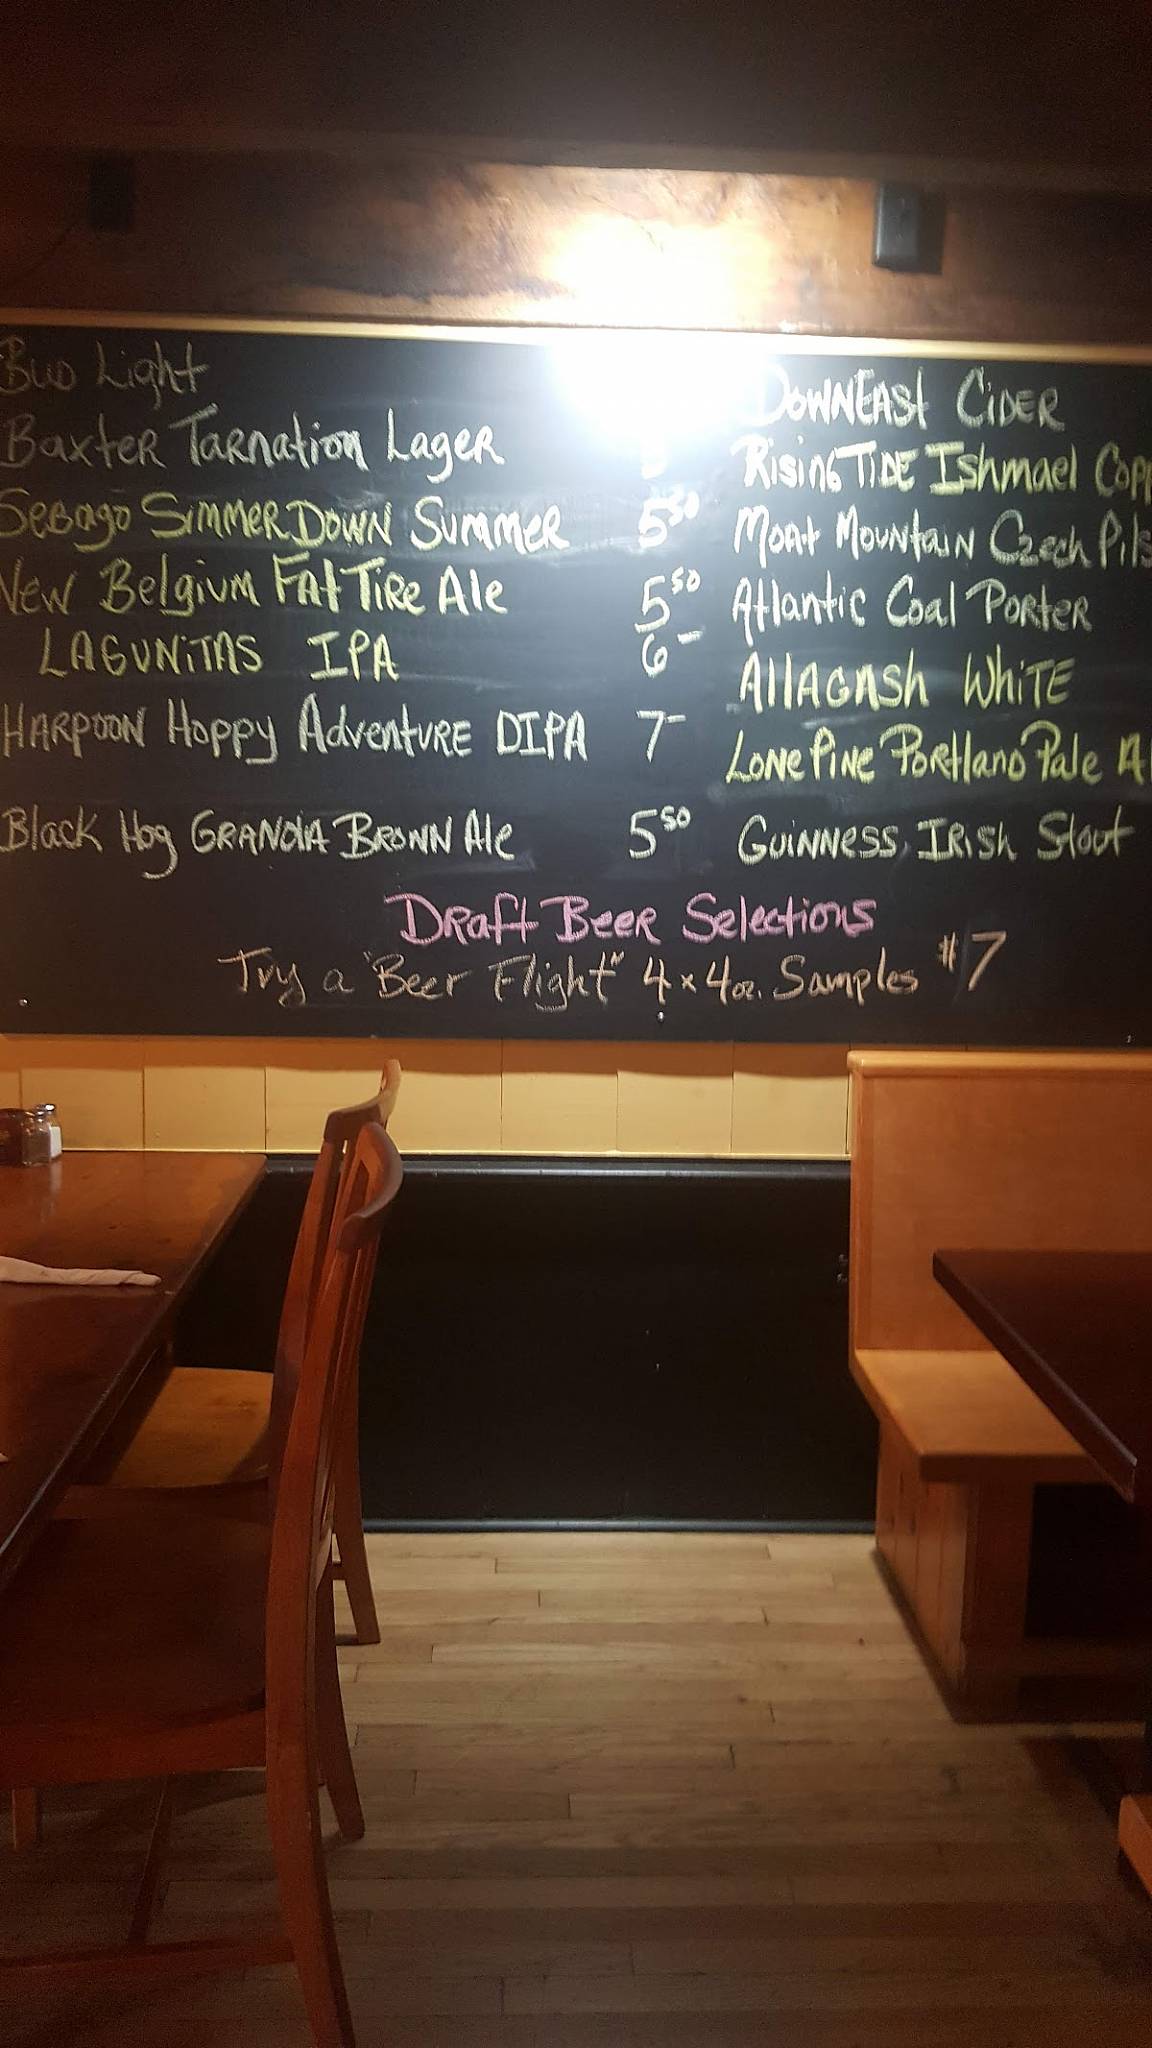 Bud Light
Baxter Tarnation Lager
Sebago SimmerDown Summer 5.50
New Belgium Fat Tire Ale 5.50
LAGUNITAS IPA 6-
HARPOON Hoppy Adventure DIPA 7-
Black Hog GRANOLA BROWN Ale 5.50
DOWNEAST CIDER
Rising TIDE Ishmael
Moat Mountain Czech
Atlantic Coal Porter
Allagash White
Lone Pine Portland Pale
Guinness Irish Stout
Draft Beer Selections
Try a "Beer Flight" 4 x 4oz. Samples $7